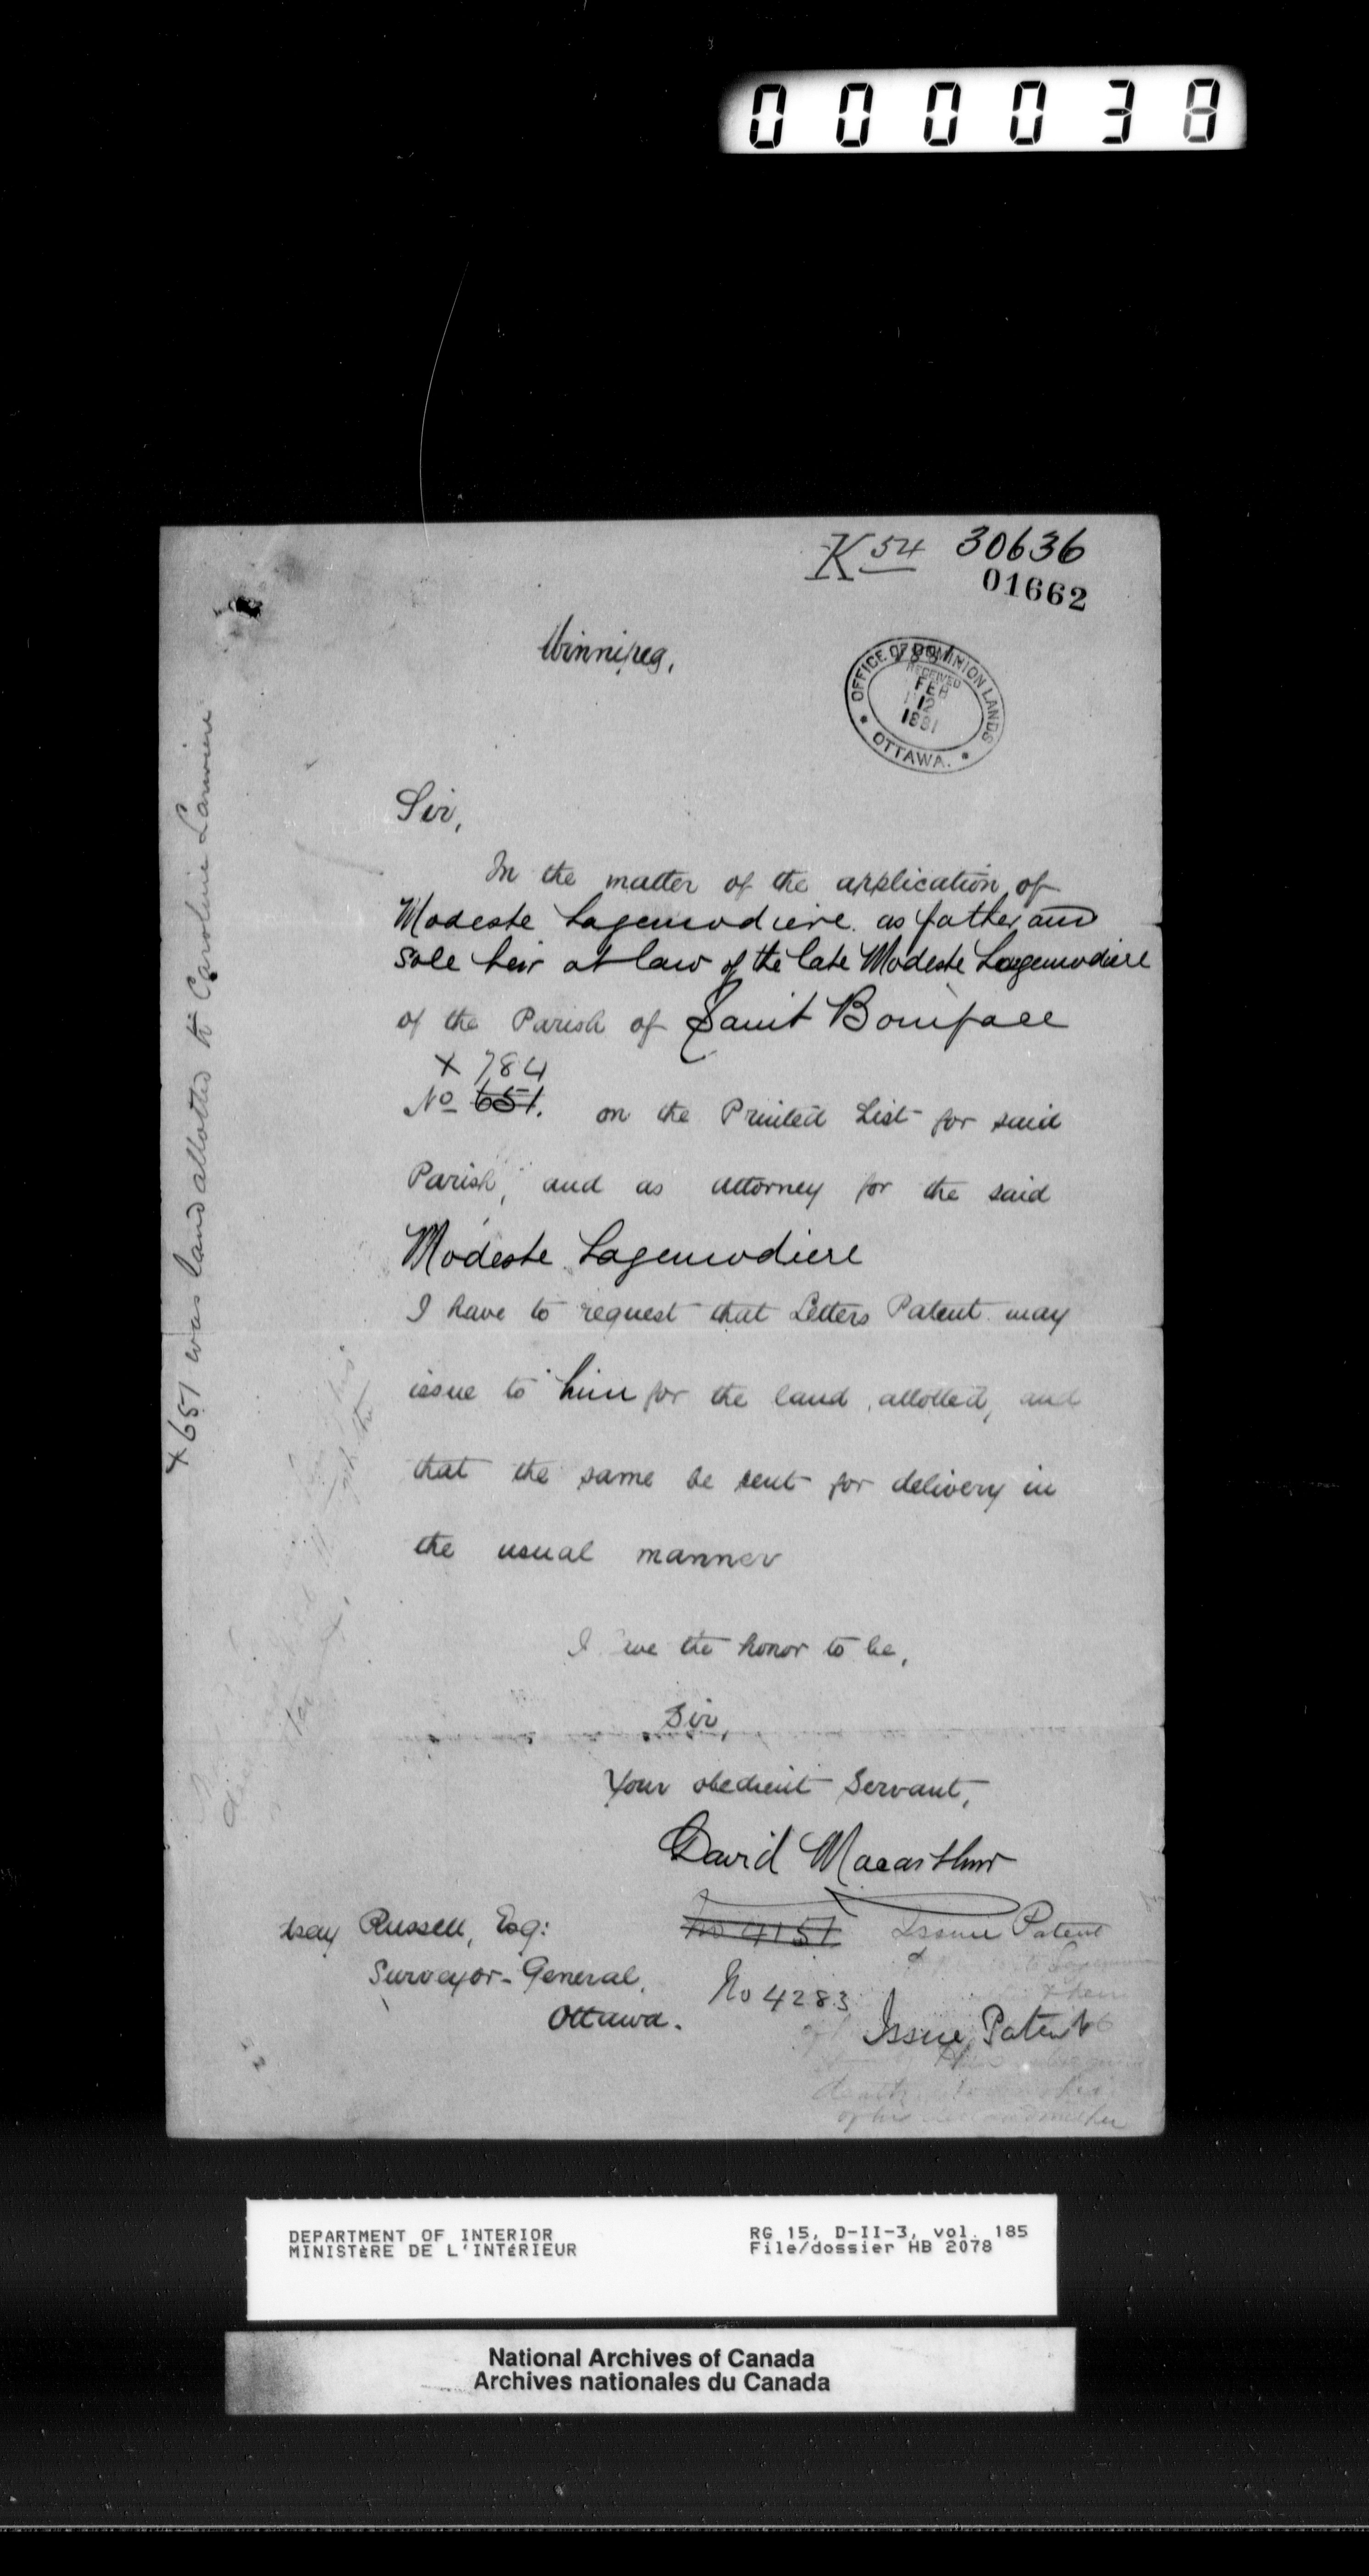 000038
K 54 30636
01662
Winnipeg,
OFFICE OF DOMINION LANDS
RECEIVED
FEB
12
1881
OTTAWA.
Sir,
In the matter of the application of
Modeste Lagemodiere as father and
sole heir at law of the late Modeste Lagemodiere
of the Parish of Saint Boniface
x 784
No 651. on the Printed List for said
Parish, and as attorney for the said
Modeste Lagemodiere
I have to request that Letters Patent may
issue to him for the land allotted, and
that the same be sent for delivery in
the usual manner
I ave the honor to be,
Sir,
Your obedient Servant,
David Macarthur
dsay Russell, Esq:
Surveyor-General,
Ottawa.
No 4151
Issue Patent
No 4283
Issue Patent
death
of his
x 651 was land allotted to Caroline Lariviere
DEPARTMENT OF INTERIOR
MINISTÈRE DE L'INTÉRIEUR
RG 15, D-II-3, vol. 185
File/dossier HB 2078
National Archives of Canada
Archives nationales du Canada